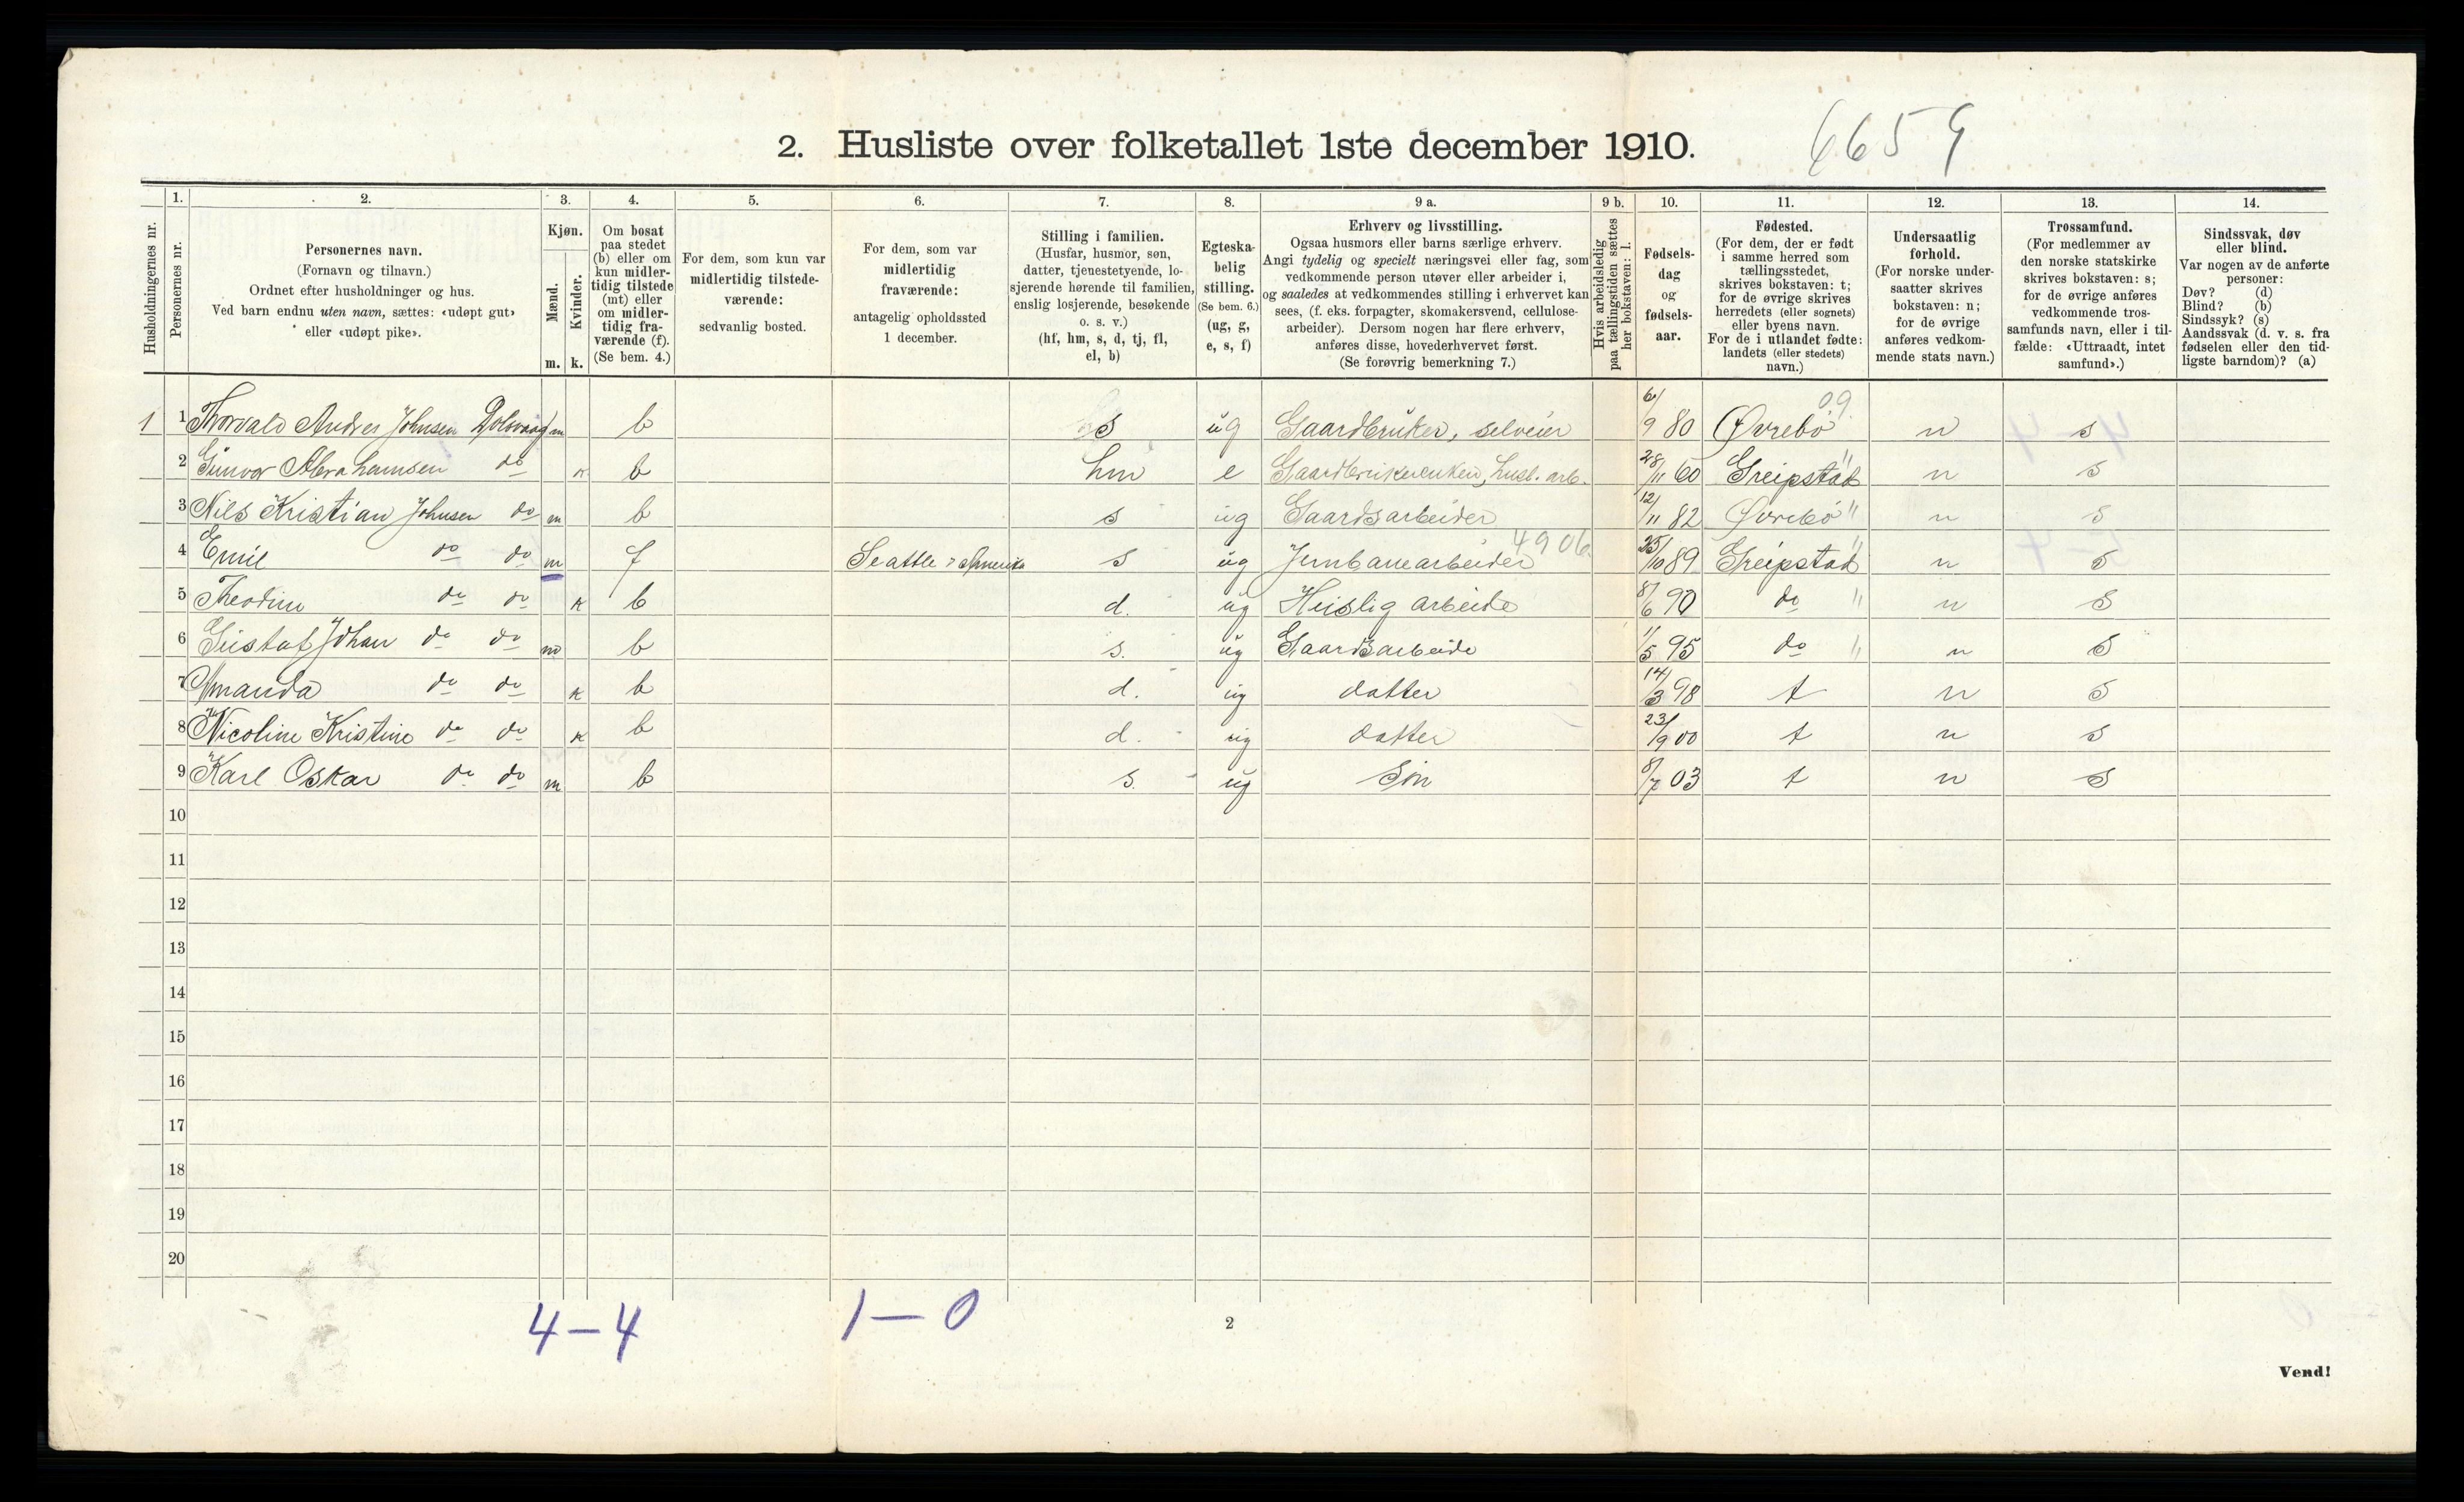 2. Husliste over folketallet 1ste december 1910. 6659
Husholdningernes nr.
1.
Personernes nr.
2.
Personernes navn.
(Fornavn og tilnavn.)
Ordnet efter husholdninger og hus.
Ved barn endnu uten navn, sættes: «udøpt gut»
eller «udøpt pike».
3.
Kjøn.
Mænd.
Kvinder.
m. k.
4.
Om bosat
paa stedet
(b) eller om
kun midler-
tidig tilstede
(mt) eller
om midler-
tidig fra-
værende (f).
(Se bem. 4.)
5.
For dem, som kun var
midlertidig tilstede-
værende:
sedvanlig bosted.
6.
For dem, som var
midlertidig
fraværende:
antagelig opholdssted
1 december.
7.
Stilling i familien.
(Husfar, husmor, søn,
datter, tjenestetyende, lo-
sjerende hørende til familien,
enslig losjerende, besøkende
o. s. v.)
(hf, hm, s, d, tj, fl,
el, b)
8.
Egteska-
belig
stilling.
(Se bem. 6.)
(ug, g,
e, s, f)
9 a.
Erhverv og livsstilling.
Ogsaa husmors eller barns særlige erhverv.
Angi tydelig og specielt næringsvei eller fag, som
vedkommende person utøver eller arbeider i,
og saaledes at vedkommendes stilling i erhvervet kan
sees, (f. eks. forpagter, skomakersvend, cellulose-
arbeider). Dersom nogen har flere erhverv,
anføres disse, hovederhvervet først.
(Se forøvrig bemerkning 7.)
9 b.
Hvis arbeidsledig
paa tællingstiden sættes
her bokstaven: l.
10.
Fødsels-
dag
og
fødsels-
aar.
11.
Fødested.
(For dem, der er født
i samme herred som
tællingsstedet,
skrives bokstaven: t;
for de øvrige skrives
herredets (eller sognets)
eller byens navn.
For de i utlandet fødte:
landets (eller stedets)
navn.)
12.
Undersaatlig
forhold.
(For norske under-
saatter skrives
bokstaven: n;
for de øvrige
anføres vedkom-
mende stats navn.)
13.
Trossamfund.
(For medlemmer av
den norske statskirke
skrives bokstaven: s;
for de øvrige anføres
vedkommende tros-
samfunds navn, eller i til-
fælde: «Uttraadt, intet
samfund».)
14.
Sindssvak, døv
eller blind.
Var nogen av de anførte
personer:
Døv? (d)
Blind? (b)
Sindssyk? (s)
Aandssvak (d. v. s. fra
fødselen eller den tid-
ligste barndom)? (a)
09
1 1 Thorvald Andres Johnsen m b s ug Gaardbruker, selveier 6/9 80 Øvrebö n s
2 Gunvor Abrahamsen do k b hm e Gaardbrukerenken, husl. arb. 28/11 60 Greipstad " n s
3 Nils Kristian Johnsen do m b s ug Gaardsarbeider 12/11 82 Øvrebö " n s
4906
4 Emil do do m f Seattle Amerika s ug Jernbanearbeider 25/10 89 Greipstad " n s
5 Theodine do do k b d. ug Huslig arbeide 8/6 90 do " n s
6 Gustaf Johan do do m b s. ug Gaardsarbeide 11/5 95 do " n s
7 Amanda do do k b d. ug datter 14/3 98 t n s
8 Nicoline Kristine do do k b d. ug datter 23/9 00 t n s
9 Karl Oskar do do m b s. ug Sön 8/7 03 t n s
10
11
12
13
14
15
16
17
18
19
20
4-4 1-0
2
Vend!